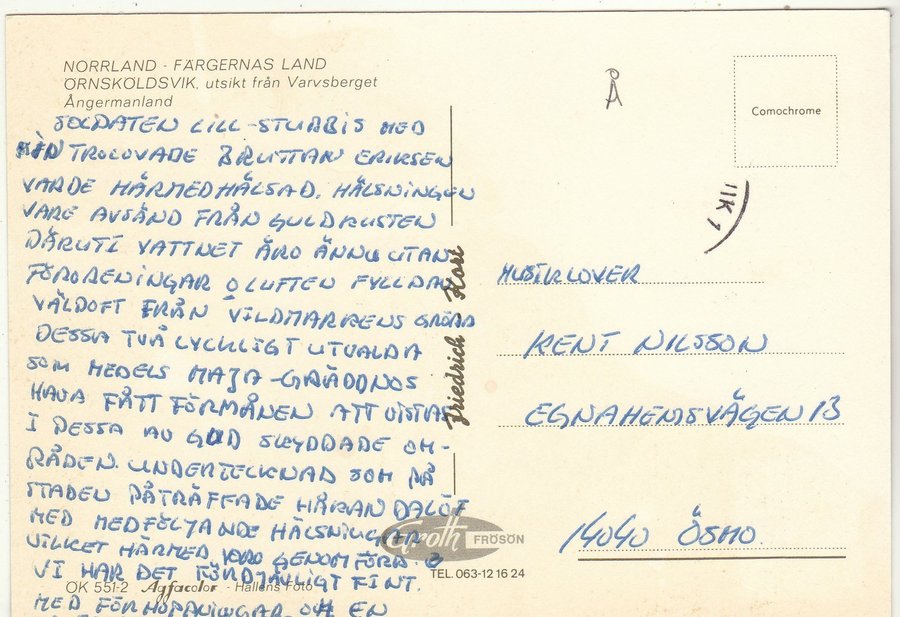 NORRLAND - FÄRGERNAS LAND
ÖRNSKÖLDSVIK, utsikt från Varvsberget
Ångermanland
SOLDATEN LILL-STUBBIS MED
SIN TROLOVADE BRUTTAN ERIKSEN
VARDE HÄRMED HÄLSAD. HÄLSNINGEN
VARE AVSÄND FRÅN GULDKUSTEN
DÄRUTI VATTNET ÄRO ÄNNU UTAN
FÖRORENINGAR O LUFTEN FYLLDA
VÄLDOFT FRÅN VILDMARKENS GRÖDA
DESSA TVÅ LYCKLIGT UTVALDA
SOM MEDELS MAJA-GRÄDDNOS
HAVA FÅTT FÖRMÅNEN ATT VISTAS
I DESSA AV GUD SKYDDADE OM-
RÅDEN. UNDERTECKNAD SOM PÅ
STADEN PÅTRÄFFADE HÅRAN DALÖF
MED MEDFÖLJANDE HÄLSNINGAR
VILKET HÄRMED VORO GENOMFÖRD. O
VI HAR DET FÖRDJÄVLIGT FINT.
MED FÖRHOPPNINGAR OM EN
ÖK 551-2 Agfacolor - Hallens Foto
Friedrich - Kort
Groth FRÖSÖN
TEL. 063-12 16 24
Å
Comochrome
11K1
MUSIKLOVER
KENT NILSSON
EGNAHEMSVÄGEN 13
14040 ÖSMO.